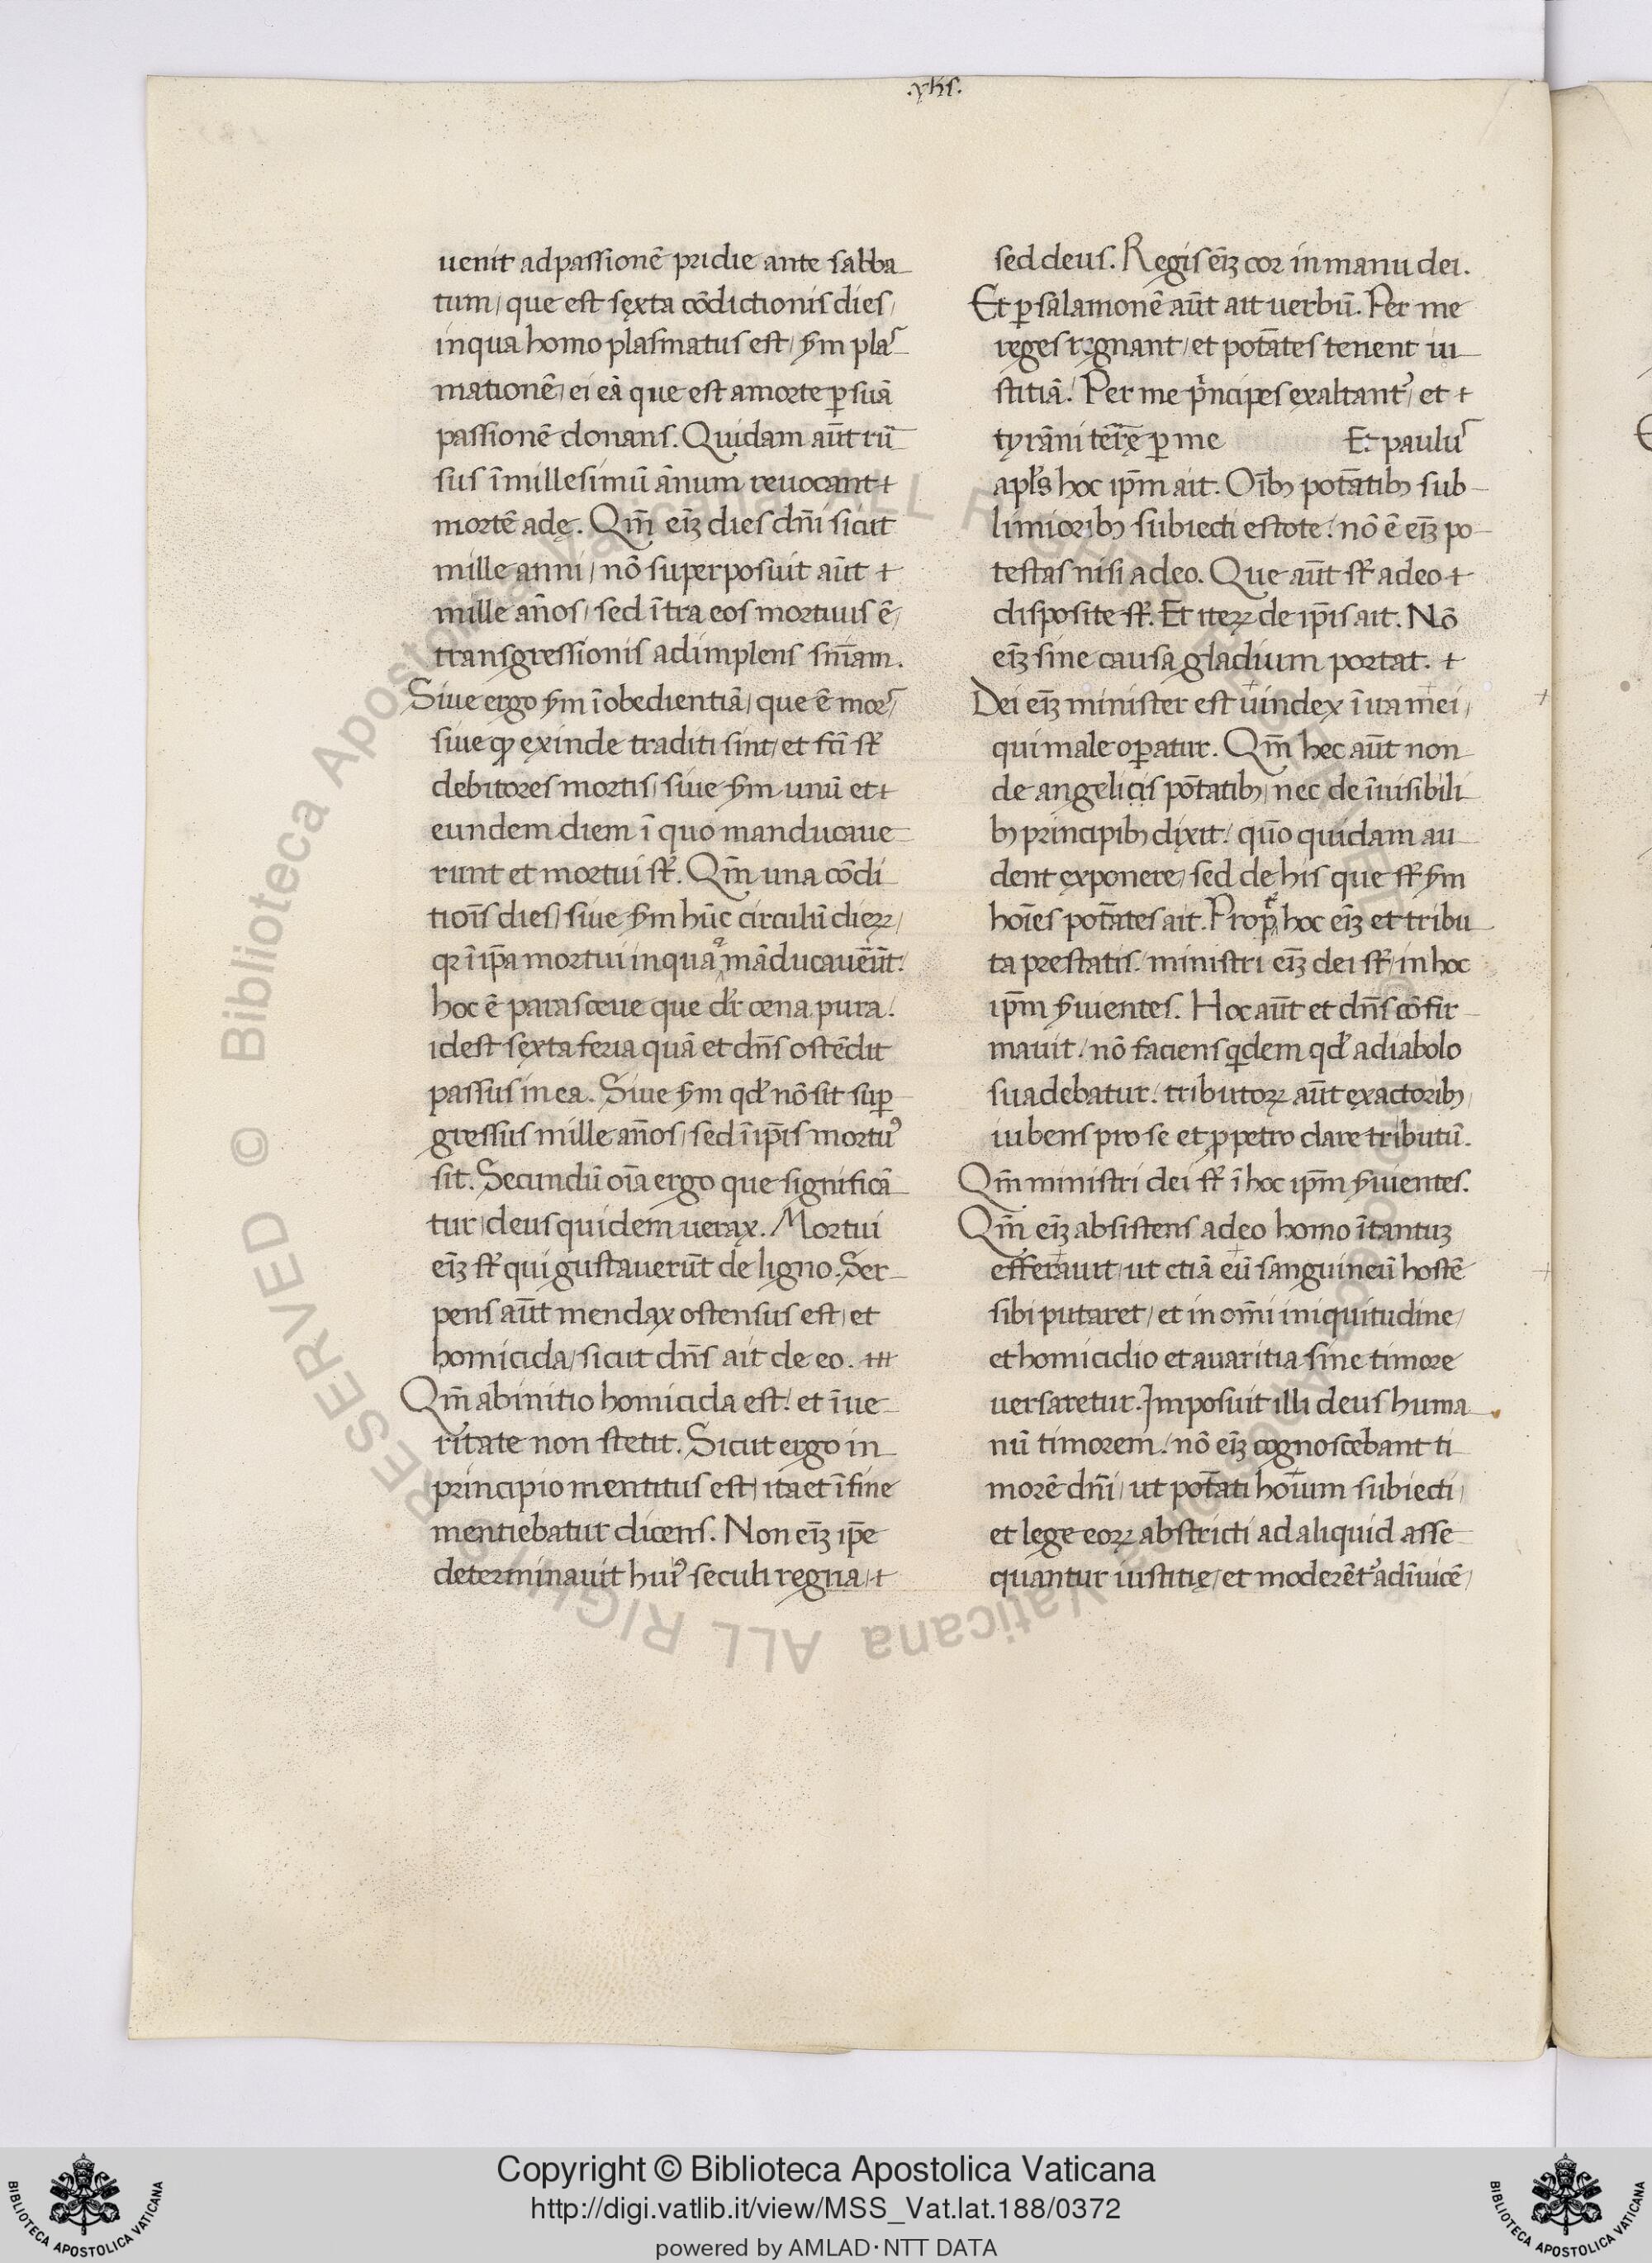 .yhs.
uenit ad passionē pridie ante sabba
tum, que est sęxta cōdictionis dies,
in qua homo plasmatus est, scḋm plas
mationē, ei eā que est a morte ꝑ suā
passionē donans. Quidam aūt rū
sus ī millesimū ānum reuocant
mortē adę. Qm̄ eīꝫ dies dn̄i sicut
mille anni, nō superposuit aūt
mille an̄os, sed ītra eos mortuus ē,
transgressionis adimplens sn̄iam.
Siue ergo scḋm īobedientiā, que ē mors,
siue ꝙ exinde traditi sint, et fc̄i st̄
debitores mortis, siue scḋm unū et
eundem diem ī quo manducaue
runt et mortui st̄. Qm̄ una cōdi
tiōis dies, siue scḋm hūc circulū dieꝝ,
qꝛ ī ip̄a mortui in qua māducauer̄ūt.
hoc ē parasceue que dr̄ cena pura.
id est sęxta feria quā et dn̄s ostēdit
passus in ea. Siue scḋm qd̄ nō sit suꝑ
gressus mille an̄os, sed ī ip̄is mortuꝰ
sit. Secundū oīa ergo que significā
tur, deus quidem uerax. Mortui
eīꝫ st̄ qui gustauerūt de ligno. Ser
pens aūt mendax ostensus est, et
homicida, sicut dn̄s ait de eo.
Qm̄ ab initio homicida est, et ī ue
ritate non stetit. Sicut ergo in
principio mentitus est, ita et ī fine
mentiebatur dicens. Non eīꝫ ip̄e
determinauit huiꝰ seculi regna,
sed deus. Regis eīꝫ cor in manu dei.
Et ꝑ salamonē aūt ait uerbū. Per me
reges regnant, et potātes tenent iu
stitiā. Per me pⁱncipes exaltantᷣ, et
tyrāni ter̄rę ꝑ me Et paulus
apl̄s hoc ip̄m ait. Oīb; potātib; sub
limiorib; subiecti estote. nō ē eīꝫ po
testas nisi a deo. Que aūt st̄ a deo
disposite st̄. Et iteꝝ de ip̄is ait. Nō
eīꝫ sine causa gladium portat.
Dei eīꝫ minister est uindex ī ua mei,
qui male oꝑatur. Qm̄ hec aūt non
de angelicis pōtatib;, nec de īuisibili
b; principib; dixit. quō quidam au
dent exponere, sed de his que st̄ scḋm
hoīes potātes ait. Propꝑ hoc eīꝫ et tribu
ta prestatis. ministri eīꝫ dei st̄, in hoc
ip̄m seruientes. Hoc aūt et dn̄s cōfir
mauit. nō faciens qⁱdem qd̄ a diabolo
suadebatur. tributoꝝ aūt exactorib;,
iubens pro se et ꝓ petro dare tributū.
Qm̄ ministri dei st̄ ī hoc ip̄m seruientes.
Qm̄ eīꝫ absistens a deo homo ī tantuꝫ
efferauit, ut etiā eū sanguineū hostē
sibi putaret, et in om̄i iniquitudine,
et homicidio et auaritia sine timore
uersaretur. Imposuit illi deus huma
nū timorem. nō eīꝫ cognoscebant ti
morē dn̄i, ut potāti hoīum subiecti,
et lege eoꝝ abstricti ad aliquid asse
quantur iustitię, et moderētᷣ ad īuicē,
© Biblioteca Apostolica Vaticana ALL RIGHTS RESERVED
Copyright © Biblioteca Apostolica Vaticana
http://digi.vatlib.it/view/MSS_Vat.lat.188/0372
powered by AMLAD·NTT DATA
BIBLIOTECA APOSTOLICA VATICANA
BIBLIOTECA APOSTOLICA VATICANA